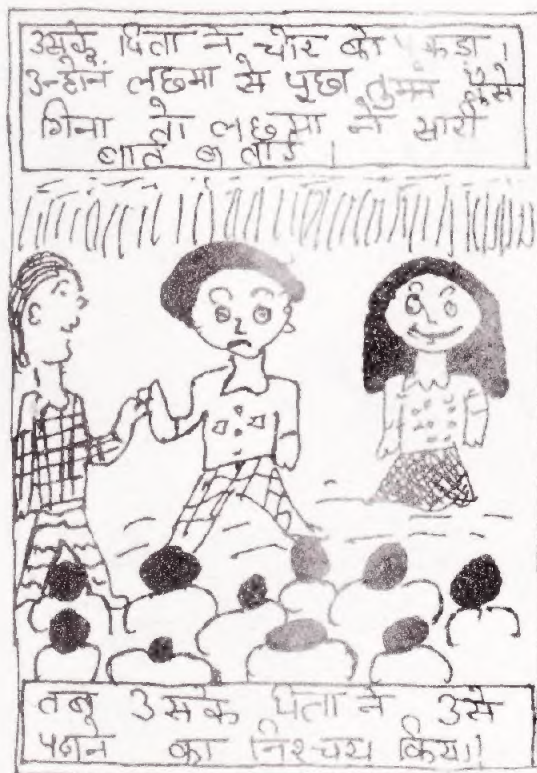 उसके पिता ने चोर को पकड़ा।
उन्होंने लछमा से पूछा तुमने कैसे
गिना तो लछमा ने सारी
बात बताई।
तब उसके पिता ने उसे
पढ़ाने का निश्चय किया।